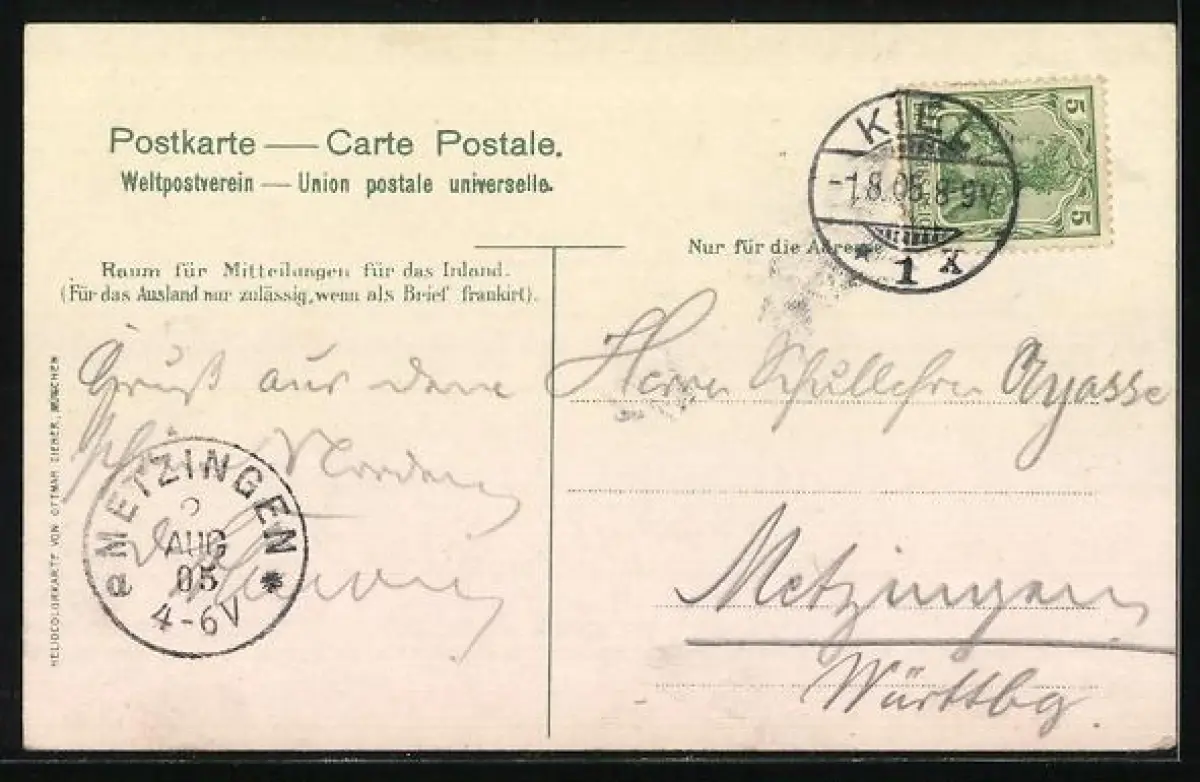 Postkarte — Carte Postale.
Weltpostverein — Union postale universelle.
Raum für Mitteilungen für das Inland.
(Für das Ausland nur zulässig, wenn als Brief frankirt).
Gruß aus dem
Norden
METZINGEN
AUG
05
4-6V
a *
HELIOCOLORKARTE VON OTTMAR ZIEHER, MÜNCHEN
5
5
KIEL
-1.8.05.8-9V
* 1 X
Nur für die Adresse
Herrn Schullehrer Ayasse
Metzingen
Württbg